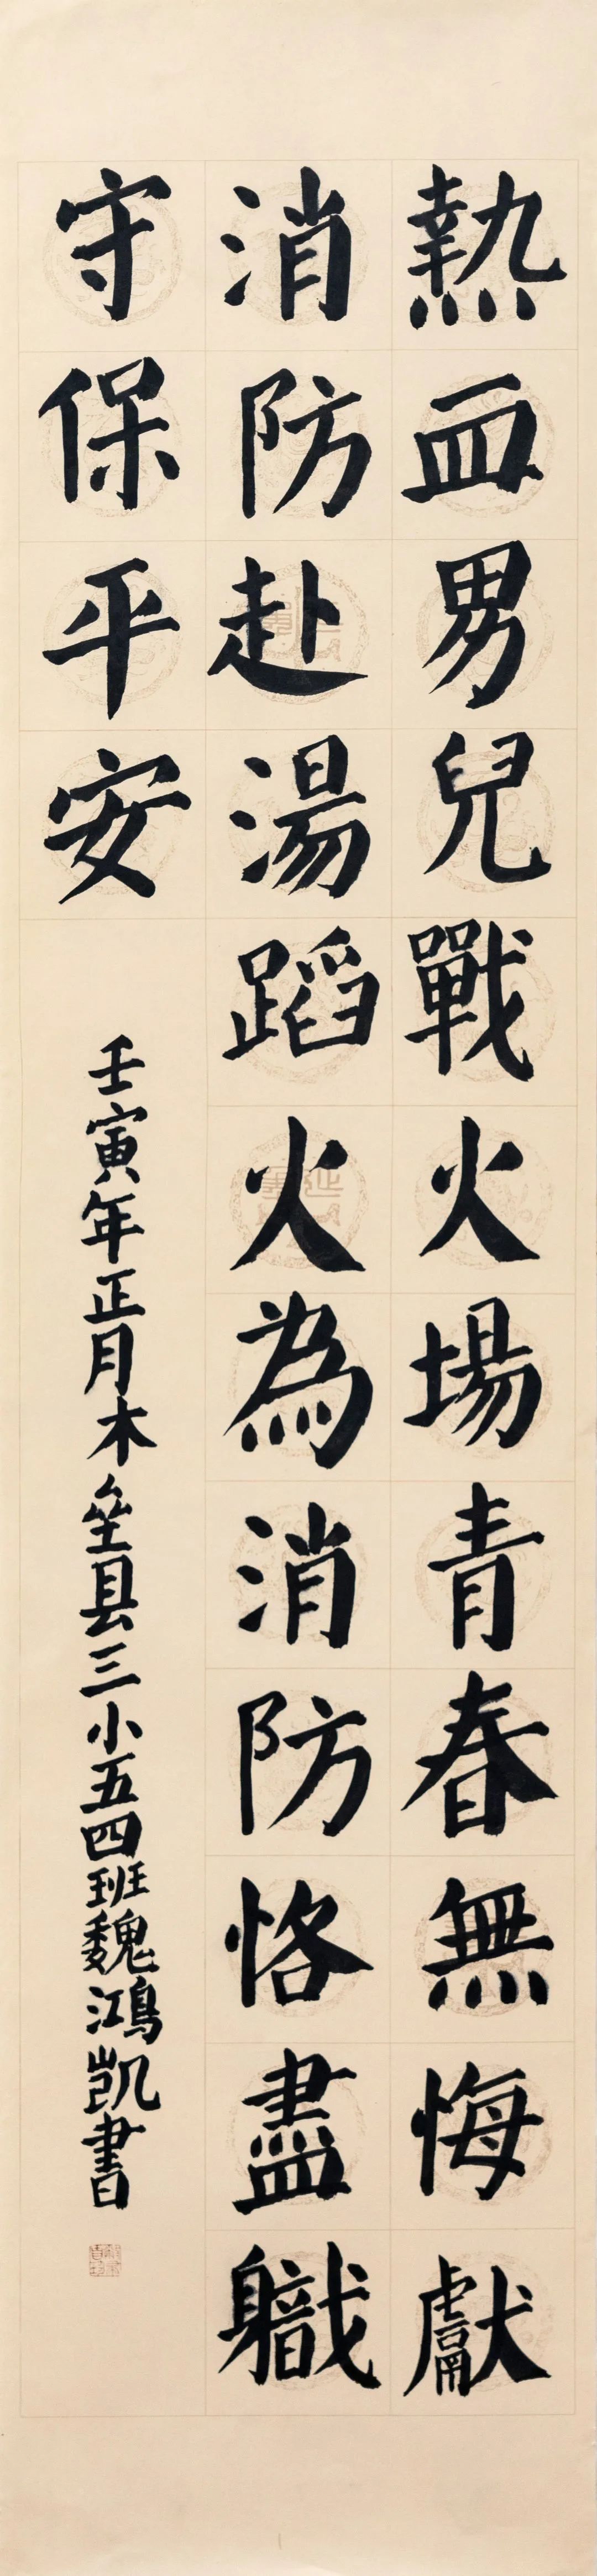 熱血男兒戰火場青春無悔獻
消防赴湯蹈火為消防恪盡職
守保平安
壬寅年正月木垒县三小五四班魏鴻凯書